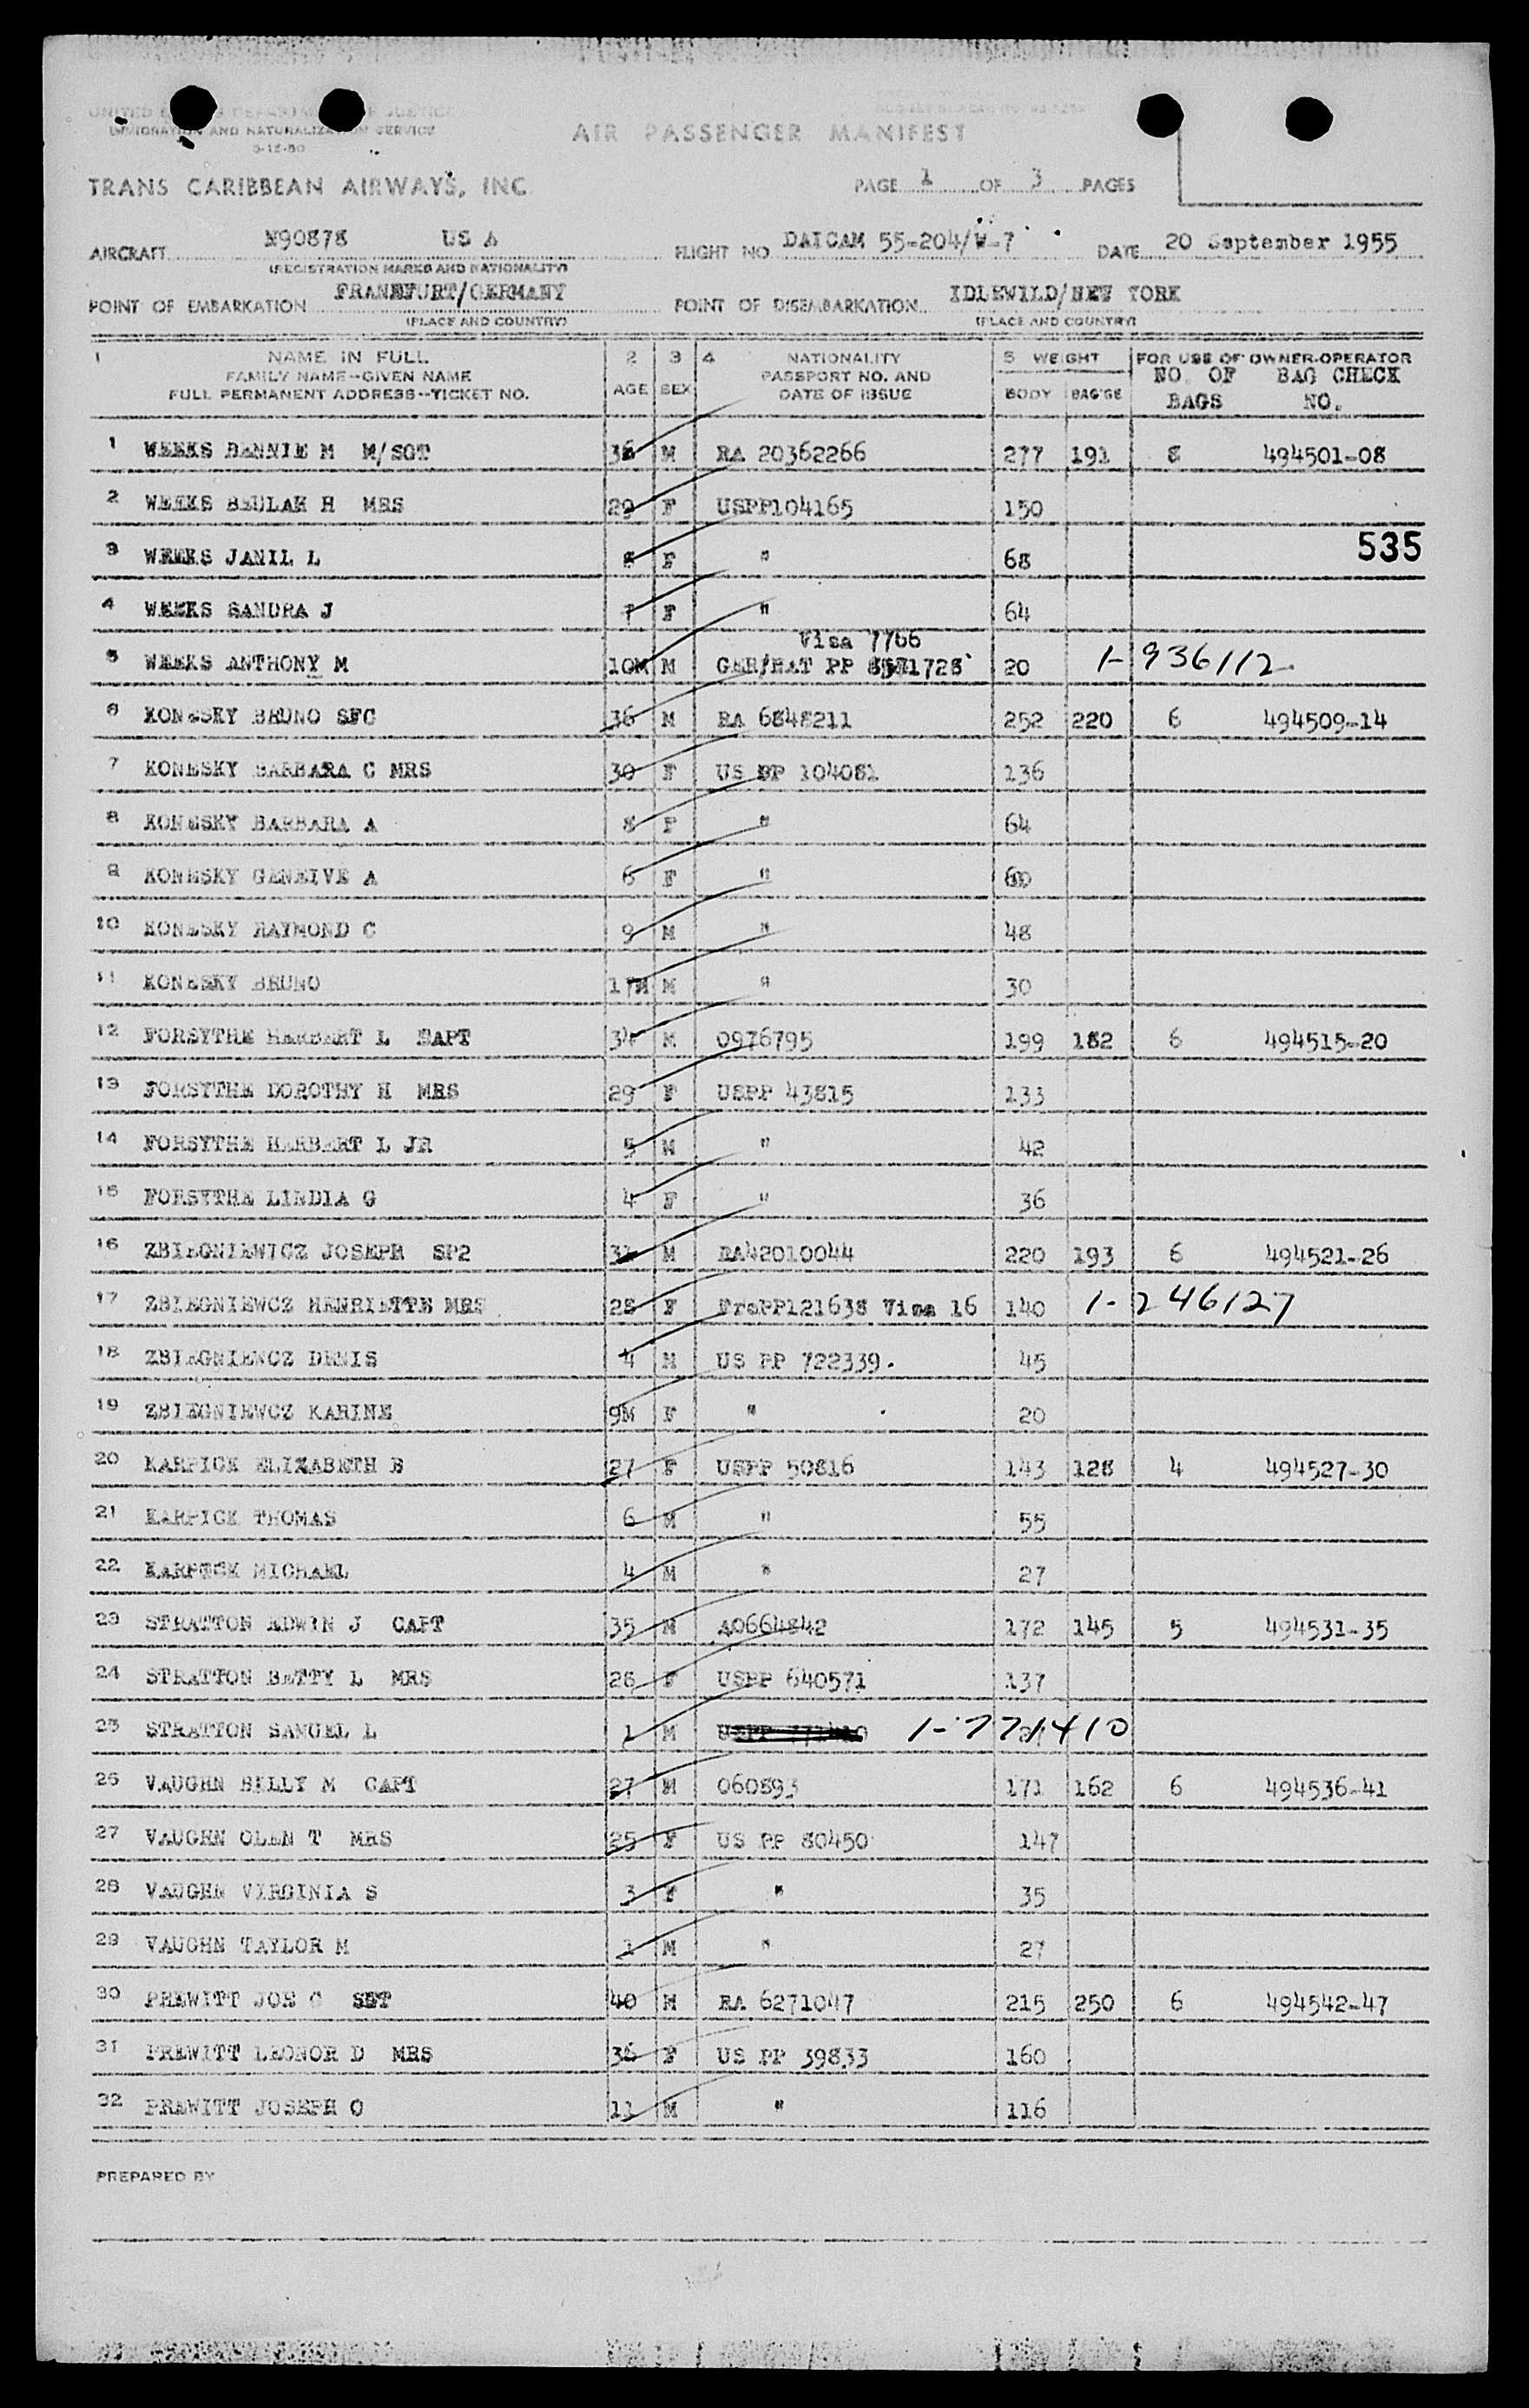 UNITED STATES DEPARTMENT OF JUSTICE
IMMIGRATION AND NATURALIZATION SERVICE
5-15-50
AIR PASSENGER MANIFEST
TRANS CARIBBEAN AIRWAYS, INC.
PAGE 1 OF 3 PAGES
AIRCRAFT N90878 US A FLIGHT NO DAICAM 55-204/W-7 DATE 20 September 1955
(REGISTRATION MARKS AND NATIONALITY)
POINT OF EMBARKATION FRANKFURT/GERMANY POINT OF DISEMBARKATION IDLEWILD/NEW YORK
(PLACE AND COUNTRY) (PLACE AND COUNTRY)
1 NAME IN FULL 2 3 4 NATIONALITY 5 WEIGHT FOR USE OF OWNER-OPERATOR
FAMILY NAME--GIVEN NAME AGE SEX PASSPORT NO. AND BODY BAG'GE NO. OF BAG CHECK
FULL PERMANENT ADDRESS--TICKET NO. DATE OF ISSUE BAGS NO.
1 WEEKS BENNIE M M/SGT 36 M RA 20362266 277 191 8 494501-08
2 WEEKS BEULAH H MRS 29 F USPP104165 150
535
3 WEEKS JANIL L 8 F " 68
4 WEEKS SANDRA J 7 F " 64
Visa 7766
5 WEEKS ANTHONY M 10M M GER/NAT PP 20 1-936112
6 KONESKY BRUNO SFC 36 M RA 6848211 252 220 6 494509-14
7 KONESKY BARBARA C MRS 30 F US PP 104081 136
8 KONESKY BARBARA A 8 F " 64
9 KONESKY GENEIVE A 6 F " 60
10 KONESKY RAYMOND C 9 M " 48
11 KONESKY BRUNO 17M M " 30
12 FORSYTHE HERBERT L CAPT 34 M 0976795 199 182 6 494515-20
13 FORSYTHE DOROTHY H MRS 29 F USPP 43815 133
14 FORSYTHE HERBERT L JR 5 M " 42
15 FORSYTHE LINDIA G 4 F " 36
16 ZBIEGNIEWICZ JOSEPH SP2 M RA42010044 220 193 6 494521-26
17 ZBIEGNIEWCZ HENRIETTE MRS 28 F FrePP121638 Visa 16 140 1-246127
18 ZBIEGNIEWCZ DENIS 4 M US PP 722339. 45
19 ZBIEGNIEWCZ KARINE 9M F " 20
20 KARPICK ELIZABETH B 27 F USPP 50816 143 128 4 494527-30
21 KARPICK THOMAS 6 M " 55
22 KARPICK MICHAEL 4 M " 27
23 STRATTON EDWIN J CAPT 35 M AO664842 172 145 5 494531-35
24 STRATTON BETTY L MRS 28 F USPP 640571 137
25 STRATTON SAMUEL L 1 M 1-771410
26 VAUGHN BILLY M CAPT 27 M 060893 171 162 6 494536-41
27 VAUGHN OLEN T MRS 25 F US PP 80450 147
28 VAUGHN VIRGINIA S 3 F " 35
29 VAUGHN TAYLOR M 1 M " 27
30 PREWITT JOE C SGT 40 M RA 6271047 215 250 6 494542-47
31 PREWITT LEONOR D MRS 36 F US PP 39833 160
32 PREWITT JOSEPH O 11 M " 116
PREPARED BY